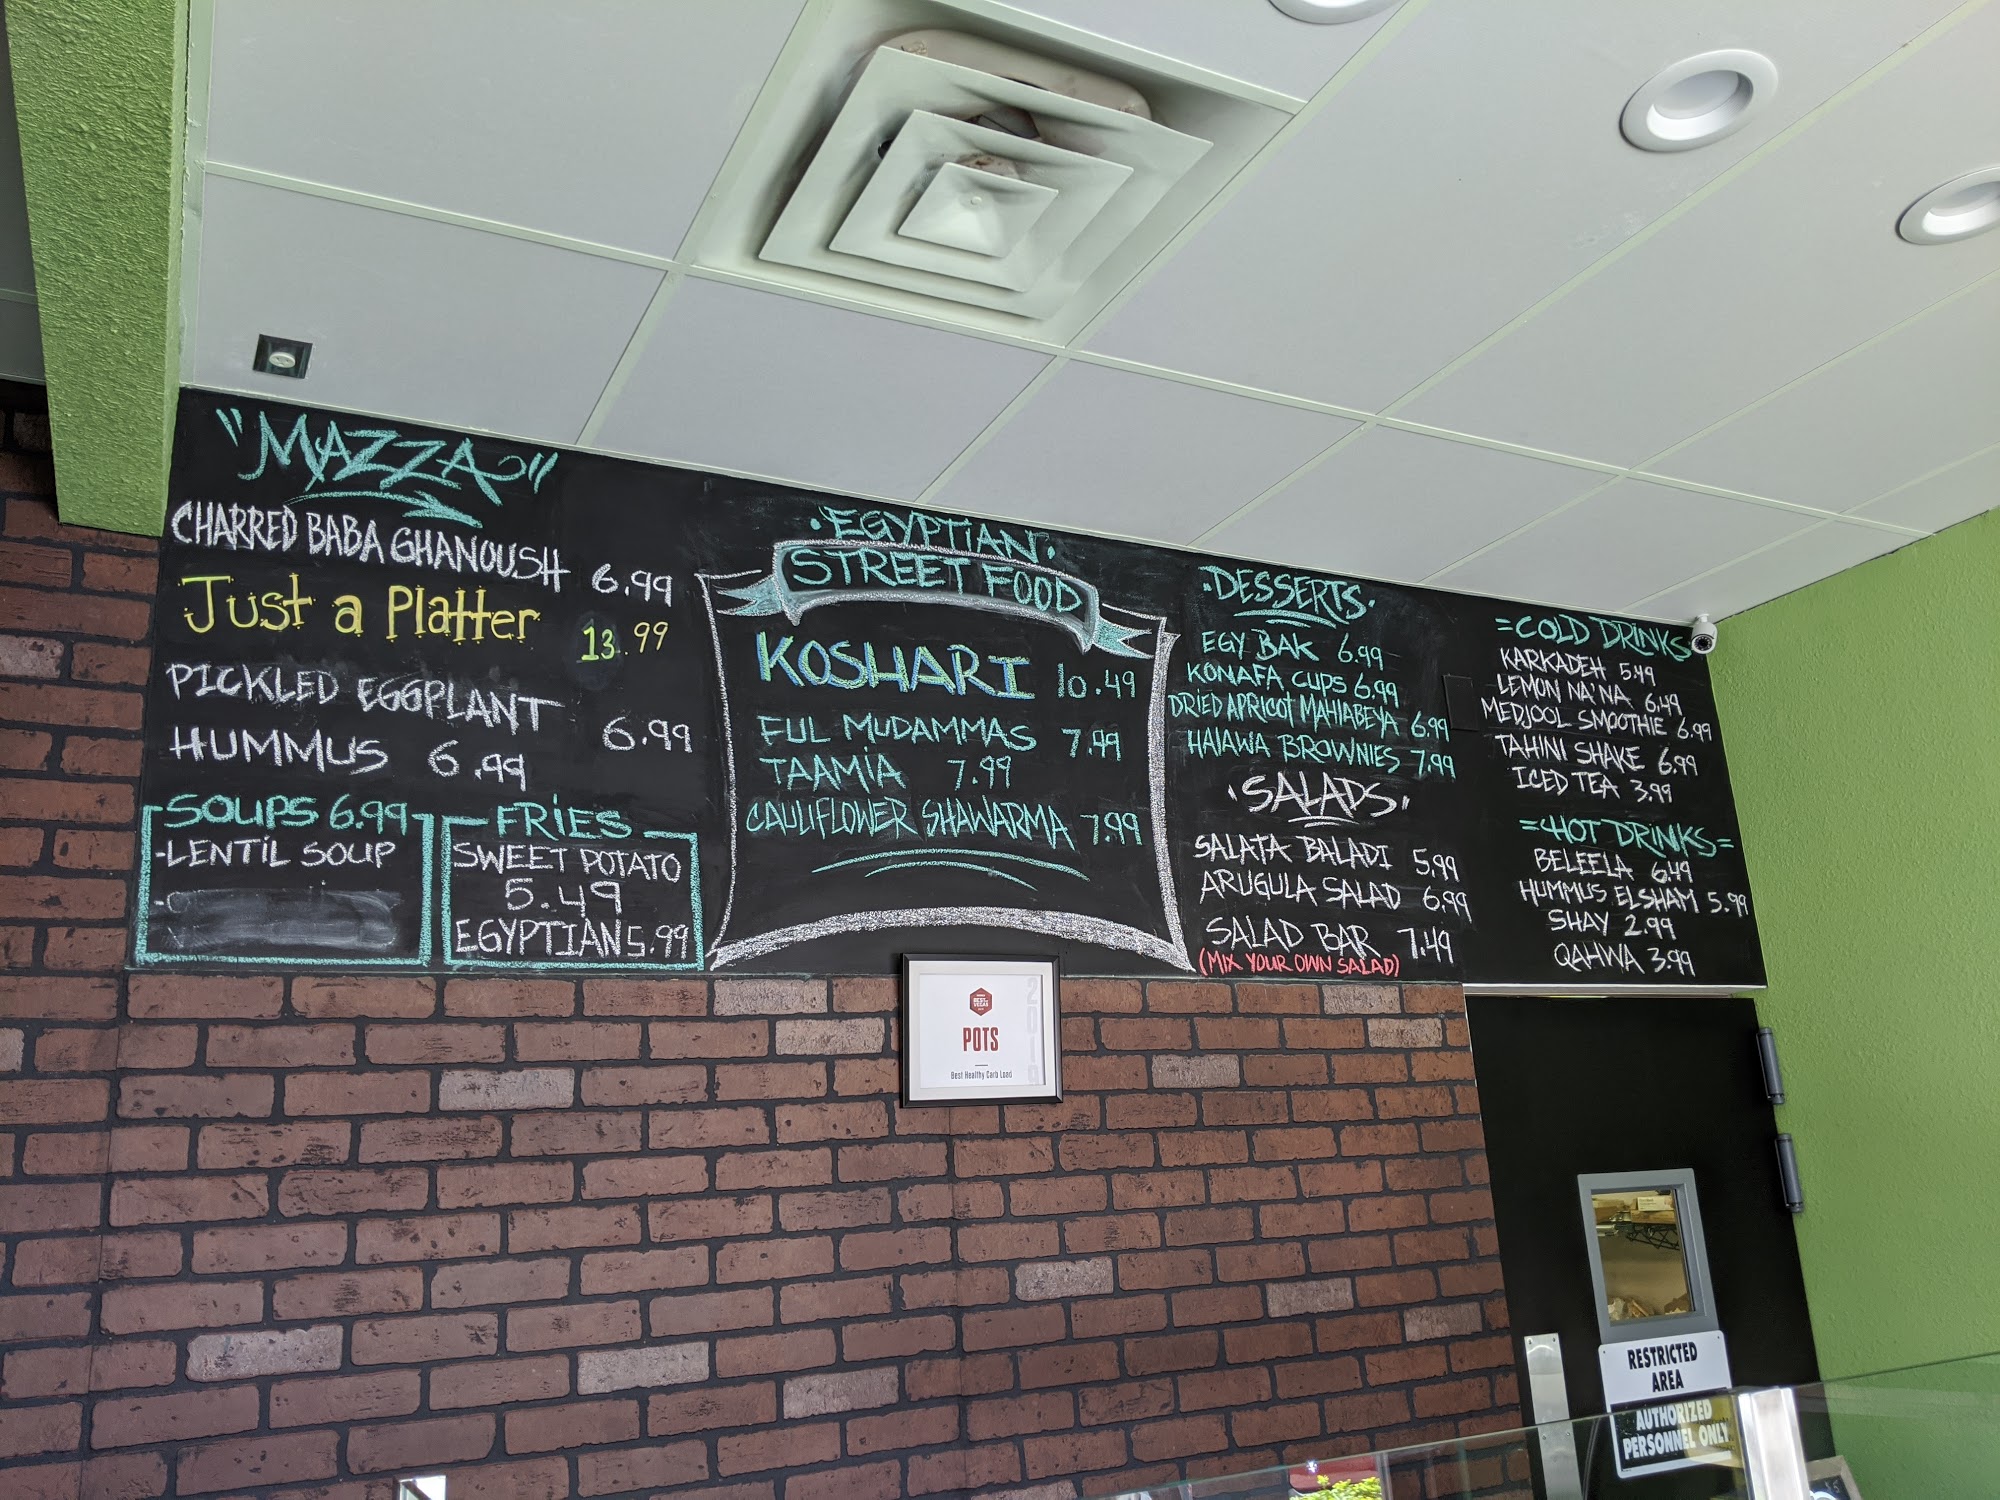 "MAZZA"
CHARRED BABA GHANOUSH 6.99
Just a Platter 13.99
PICKLED EGGPLANT 6.99
HUMMUS 6.99
SOUPS 6.99
-LENTIL SOUP
-
FRIES
SWEET POTATO
5.49
EGYPTIAN 5.99
·EGYPTIAN·
STREET FOOD
KOSHARI 10.49
FUL MUDAMMAS 7.49
TAAMIA 7.99
CAULIFLOWER SHAWARMA 7.99
·DESSERTS·
EGY BAK 6.99
KONAFA CUPS 6.99
DRIED APRICOT MAHLABEYA 6.99
HALAWA BROWNIES 7.99
·SALADS·
SALATA BALADI 5.99
ARUGULA SALAD 6.99
SALAD BAR 7.49
(MIX YOUR OWN SALAD)
=COLD DRINKS
KARKADEH 5.49
LEMON NA'NA 6.49
MEDJOOL SMOOTHIE 6.99
TAHINI SHAKE 6.99
ICED TEA 3.99
=HOT DRINKS=
BELEELA 6.49
HUMMUS ELSHAM 5.99
SHAY 2.99
QAHWA 3.99
BEST OF VEGAS
2019
POTS
Best Healthy Carb Load
RESTRICTED
AREA
AUTHORIZED
PERSONNEL ONLY